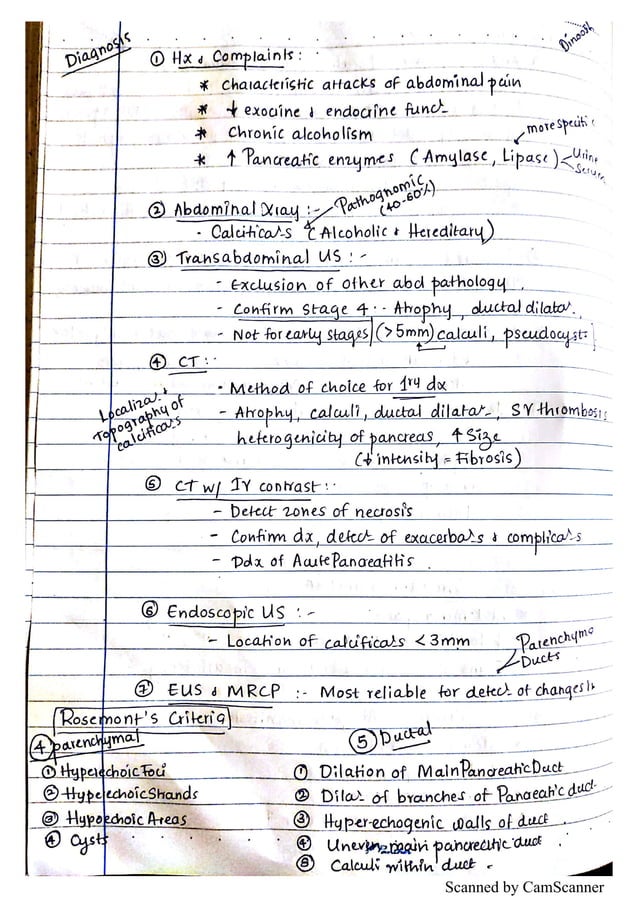 Diagnosis
Dinoosh
① Hx & Complaints :
* Characteristic attacks of abdominal pain
* ↓ exocrine & endocrine funct
* Chronic alcoholism
more specific
* ↑ Pancreatic enzymes (Amylase, Lipase) < Urine
Serum
Pathognomic
(40-60%)
② Abdominal Xray :-
- Calcificaᵗs (Alcoholic & Hereditary)
③ Transabdominal US :-
- Exclusion of other abd pathology
- Confirm Stage 4 - Atrophy, ductal dilatᵒ
- Not for early stages (>5mm) calculi, pseudocyst
④ CT :-
- Method of choice for 1ry dx
Localiza &
Topography of
calcificaˢ
- Atrophy, calculi, ductal dilatat, SV thrombosis
heterogenicity of pancreas, ↑ Size
(↓ intensity = Fibrosis)
⑤ CT w/ IV contrast :-
- Detect zones of necrosis
- Confirm dx, detect of exacerbaˢ & complicaˢ
- Ddx of Acute Pancreatitis.
⑥ Endoscopic US :-
- Location of calcificaˢ <3mm
Parenchyma
Ducts
⑦ EUS & MRCP :- Most reliable for detect of changes in
Rosemont's Criteria
④ parenchymal
⑤ Ductal
① Hyperechoic Foci
① Dilation of Main Pancreatic Duct
② Hyperechoic Strands
② Dilaᵗ of branches of Pancreatic duct
③ Hypoechoic Areas
③ Hyper-echogenic walls of duct
④ Cysts
④ Uneven main pancreatic duct
⑤ Calculi within duct
Scanned by CamScanner